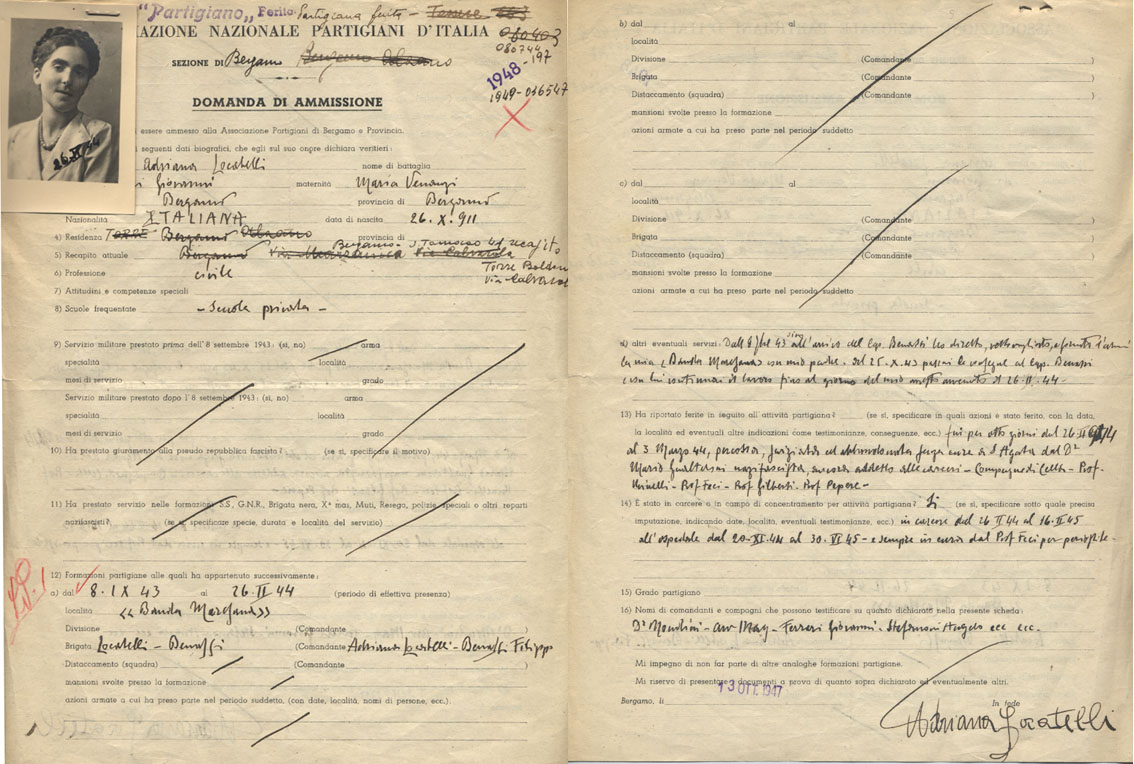 "Partigiano„ Ferito Partigiana ferita -
AZIONE NAZIONALE PARTIGIANI D'ITALIA 080403
080744
SEZIONE DI Bergamo
1948-197
1949-036547
DOMANDA DI AMMISSIONE
di essere ammesso alla Associazione Partigiani di Bergamo e Provincia.
i seguenti dati biografici, che egli sul suo onore dichiara veritieri:
Adriana Locatelli nome di battaglia
26.II.44
di Giovanni maternità Maria
Bergamo provincia di Bergamo
Nazionalità ITALIANA data di nascita 26.X.911
4) Residenza TORRE Bergamo provincia di
5) Recapito attuale Bergamo Bergamo - S. Tomaso 41 recapito
Torre Boldone
6) Professione civile Via
7) Attitudini e competenze speciali
8) Scuole frequentate - Scuola privata -
9) Servizio militare prestato prima dell'8 settembre 1943: (si, no) arma
specialità località
mesi di servizio grado
Servizio militare prestato dopo l'8 settembre 1943: (si, no) arma
specialità località
mesi di servizio grado
10) Ha prestato giuramento alla pseudo repubblica fascista? (se si, specificare il motivo)
11) Ha prestato servizio nelle formazioni S.S, G.N.R., Brigata nera, Xª mas, Muti, Resega, polizie speciali o altri reparti
nazifascisti? (se si specificare specie, durata e località del servizio)
12) Formazioni partigiane alle quali ha appartenuto successivamente:
a) dal 8.IX 43 al 26.II 44 (periodo di effettiva presenza)
località «Banda Maresana»
Divisione (Comandante )
Brigata Locatelli - Benassi (Comandante Adriana Locatelli - Benassi Filippo
Distaccamento (squadra) (Comandante )
mansioni svolte presso la formazione
azioni armate a cui ha preso parte nel periodo suddetto, (con date, località, nomi di persone, ecc.)
b) dal al
località
Divisione (Comandante )
Brigata (Comandante )
Distaccamento (squadra) (Comandante )
mansioni svolte presso la formazione
azioni armate a cui ha preso parte nel periodo suddetto
c) dal al
località
Divisione (Comandante )
Brigata (Comandante )
Distaccamento (squadra) (Comandante )
mansioni svolte presso la formazione
azioni armate a cui ha preso parte nel periodo suddetto
d) altri eventuali servizi: Dall'8 7bre 43 sino all'arrivo del Cap. Benassi ho diretto,
la mia «Banda Maresana» con mio padre. Del 25.X.43 passai le consegne al Cap. Benassi
con lui continuai il lavoro fino al giorno del mio arresto avvenuto il 26.II.44-
13) Ha riportato ferite in seguito all'attività partigiana? (se si, specificare in quali azioni è stato ferito, con la data,
la località ed eventuali altre indicazioni come testimonianze, conseguenze, ecc.) fui per otto giorni dal 26 II 44
al 3 Marzo 44, percossa, ed abbandonata senza cure a S. Agata dal Dr
Mario Gualteroni nazifascista, ancora addetto alle carceri - Compagne di Cella - Prof.
- Prof Feci - Prof Giliberti. Prof Pepere -
14) È stato in carcere o in campo di concentramento per attività partigiana? Si (se si, specificare sotto quale precisa
imputazione, indicando date, località, eventuali testimonianze, ecc.) in carcere dal 26 II 44 al 16.II 45
all'ospedale dal 20-XII 44 al 30.VI 45 - e sempre in cura dal Prof Feci per
15) Grado partigiano
16) Nomi di comandanti e compagni che possono testificare su quanto dichiarato nella presente scheda:
Dr - avv May - Ferrari Giovanni - Angelo ecc ecc.
Mi impegno di non far parte di altre analoghe formazioni partigiane.
Mi riservo di presentare documenti a prova di quanto sopra dichiarato ed eventualmente altri.
Bergamo, li 13 OTT. 1947 In fede
Adriana Locatelli